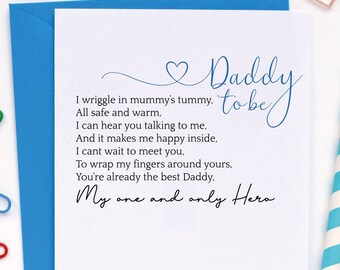 Daddy
to be
I wriggle in mummy's tummy,
All safe and warm,
I can hear you talking to me,
And it makes me happy inside,
I cant wait to meet you,
To wrap my fingers around yours,
You're already the best Daddy,
My one and only Hero